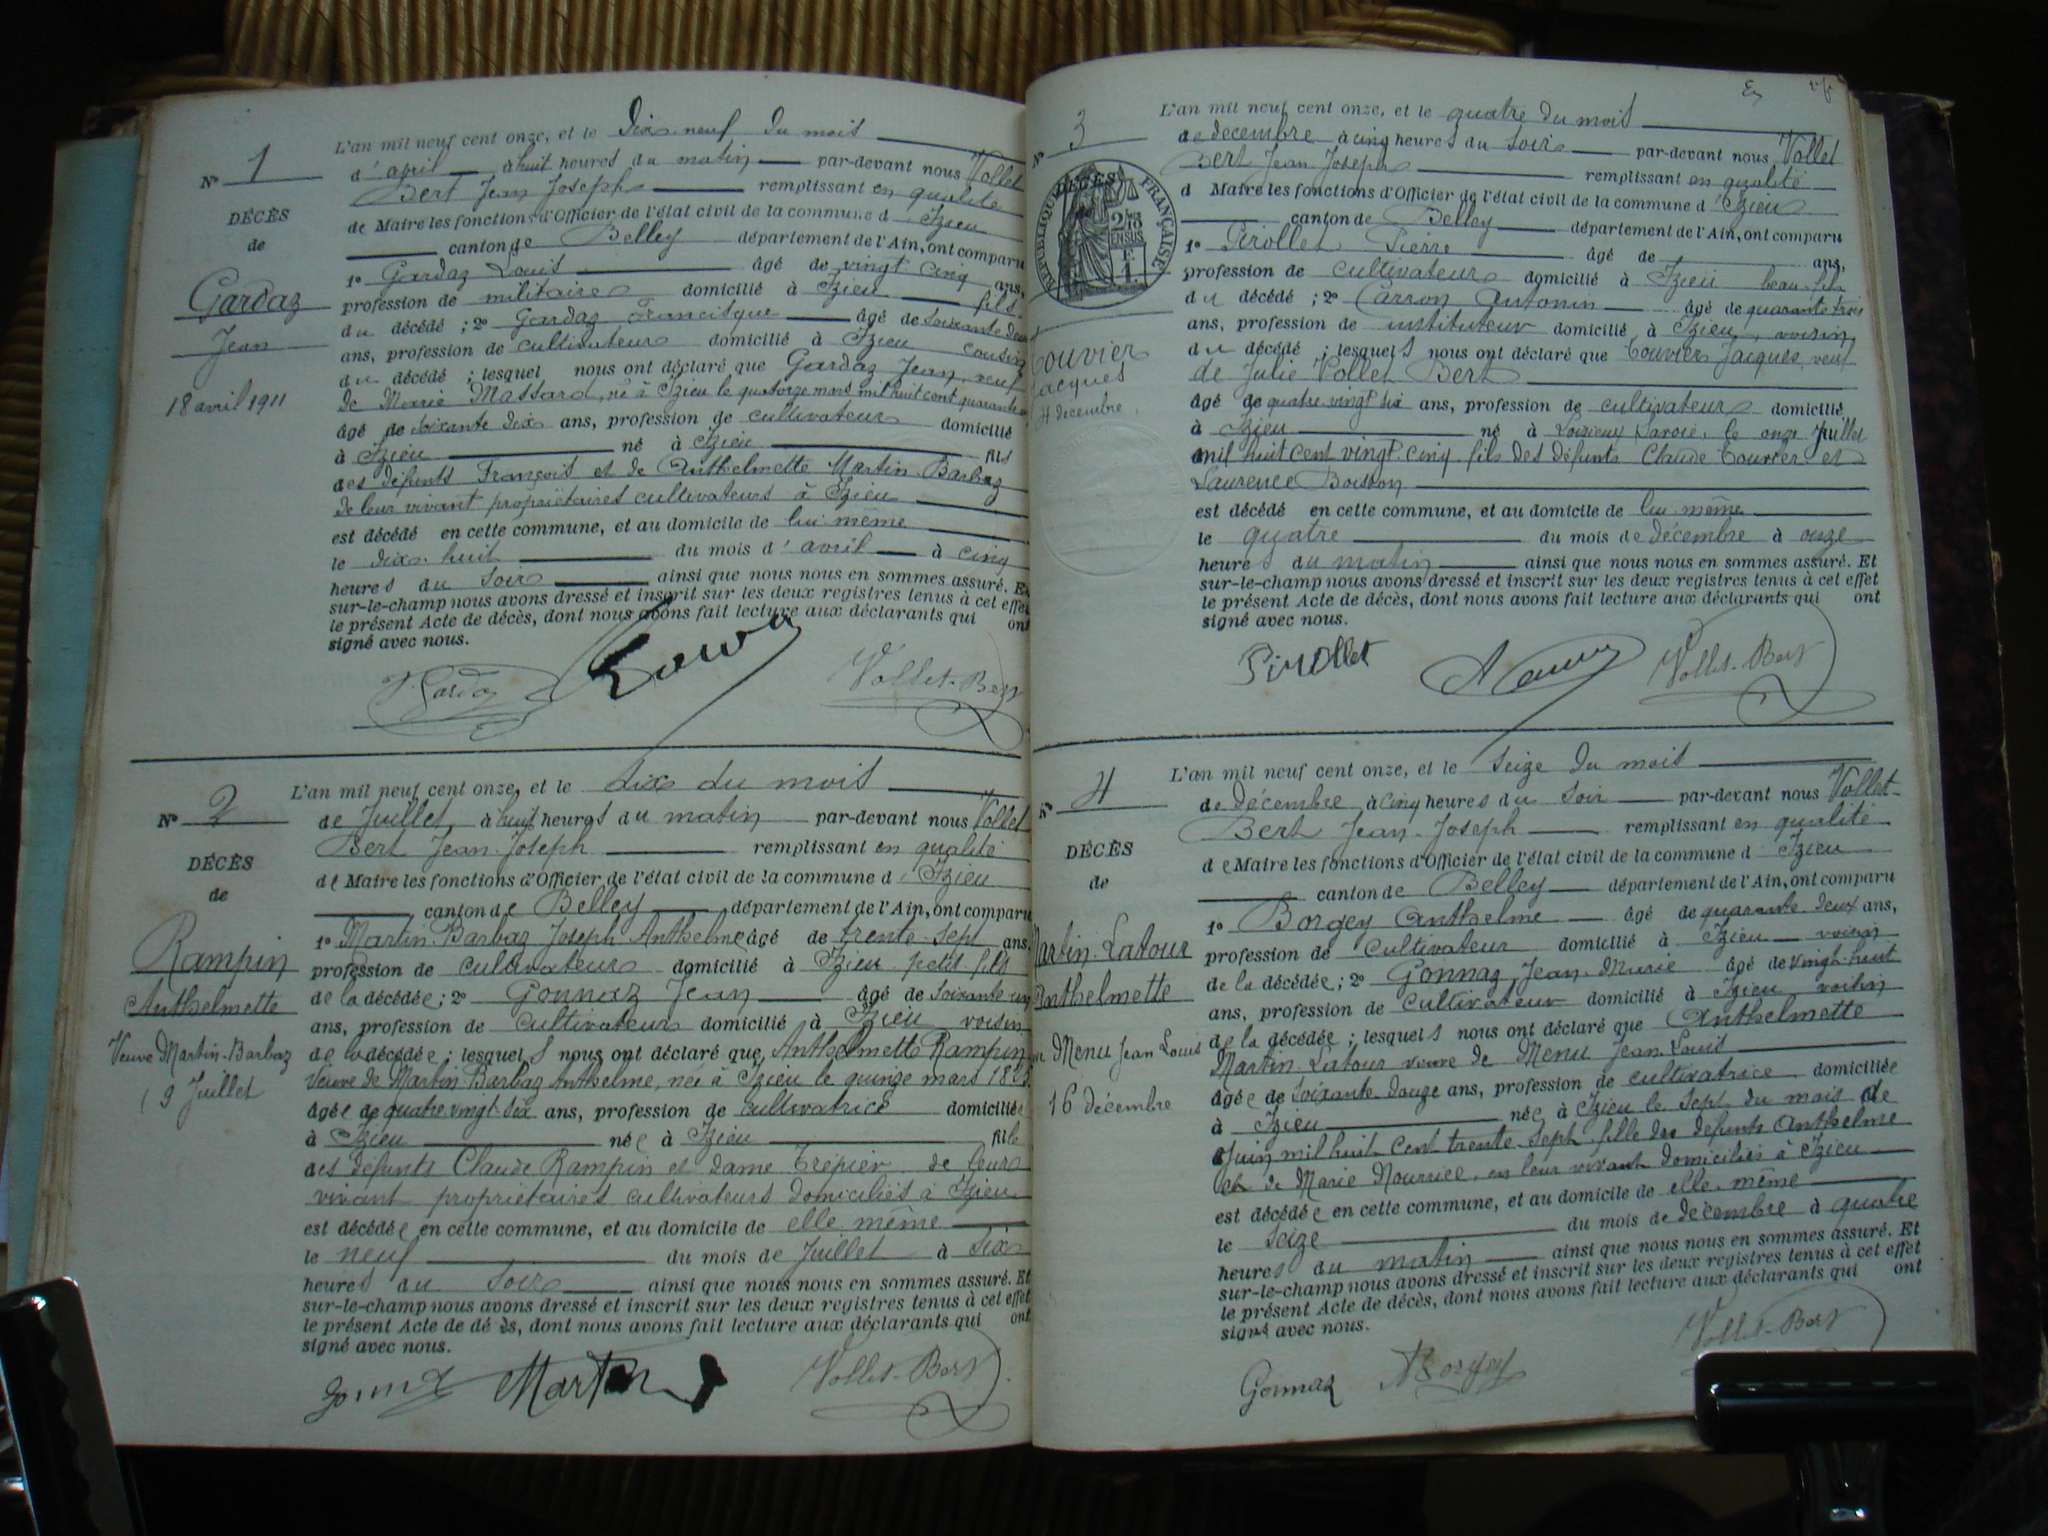 N° 1
DÉCÈS
de
Gardaz
Jean
18 avril 1911
L'an mil neuf cent onze, et le dix-neuf du mois
d'avril à huit heures du matin par-devant nous Vollet
Bert Jean Joseph remplissant en qualité
de Maire les fonctions d'Officier de l'état civil de la commune d'Izieu
canton de Belley département de l'Ain, ont comparu
1° Gardaz Louis âgé de vingt cinq ans,
profession de militaire domicilié à Izieu fils
du décédé ; 2° Gardaz Francisque âgé de soixante deux
ans, profession de cultivateur domicilié à Izieu cousin
du décédé ; lesquel nous ont déclaré que Gardaz Jean, veuf
de Marie Massard, né à Izieu le quatorze mars mil huit cent quarante
âgé de soixante dix ans, profession de cultivateur domicilié
à Izieu né à Izieu fils
des défunts François et de Anthelmette Martin-Barbaz
de leur vivant propriétaires cultivateurs à Izieu
est décédé en cette commune, et au domicile de lui-même
le dix-huit du mois d'avril à cinq
heures du soir ainsi que nous nous en sommes assuré. Et
sur-le-champ nous avons dressé et inscrit sur les deux registres tenus à cet effet
le présent Acte de décès, dont nous avons fait lecture aux déclarants qui ont
signé avec nous.
Gardaz Vollet-Bert
N° 2
DÉCÈS
de
Rampin
Anthelmette
Veuve Martin-Barbaz
9 Juillet
L'an mil neuf cent onze, et le dix du mois
de Juillet, à huit heures du matin par-devant nous Vollet
Bert Jean-Joseph remplissant en qualité
de Maire les fonctions d'Officier de l'état civil de la commune d'Izieu
canton de Belley département de l'Ain, ont comparu
1° Martin-Barbaz Joseph-Anthelme âgé de trente-sept ans,
profession de cultivateur domicilié à Izieu petit fils
de la décédée ; 2° Gonnaz Jean âgé de soixante un
ans, profession de cultivateur domicilié à Izieu voisin
de la décédée ; lesquels nous ont déclaré que Anthelmette Rampin
Veuve de Martin-Barbaz Anthelme, née à Izieu le quinze mars 1825
âgée de quatre vingt six ans, profession de cultivatrice domiciliée
à Izieu née à Izieu fille
des défunts Claude Rampin et dame Trépier de leurs
vivant propriétaires cultivateurs domiciliés à Izieu
est décédée en cette commune, et au domicile de elle même
le neuf du mois de Juillet à six
heures du soir ainsi que nous nous en sommes assuré. Et
sur-le-champ nous avons dressé et inscrit sur les deux registres tenus à cet effet
le présent Acte de dé ès, dont nous avons fait lecture aux déclarants qui ont
signé avec nous.
Gonnaz Martin Vollet-Bert
N° 3
RÉPUBLIQUE FRANÇAISE
DÉCÈS
Touvier
Jacques
4 decembre
L'an mil neuf cent onze, et le quatre du mois
de decembre à cinq heures du soir par-devant nous Vollet
Bert Jean Joseph remplissant en qualité
d Maire les fonctions d'Officier de l'état civil de la commune d'Izieu
canton de Belley département de l'Ain, ont comparu
1° Pirollet Pierre âgé de ans,
profession de cultivateur domicilié à Izieu beau-fils
du décédé ; 2° Carron Antonin âgé de quarante trois
ans, profession de instituteur domicilié à Izieu, voisin
du décédé ; lesquels nous ont déclaré que Touvier Jacques, veuf
de Julie Vollet Bert
âgé de quatre vingt six ans, profession de cultivateur domicilié
à Izieu né à Loisieux Savoie, le onze Juillet
mil huit cent vingt-cinq fils des défunts Claude Touvier et
Laurence Boisson
est décédé en cette commune, et au domicile de lui-même
le quatre du mois de décembre à onze
heures du matin ainsi que nous nous en sommes assuré. Et
sur-le-champ nous avons dressé et inscrit sur les deux registres tenus à cet effet
le présent Acte de décès, dont nous avons fait lecture aux déclarants qui ont
signé avec nous.
Pirollet Vollet-Bert
N° 4
DÉCÈS
de
Martin-Latour
Anthelmette
Menu Jean Louis
16 décembre
L'an mil neuf cent onze, et le seize du mois
de décembre à cinq heures du soir par-devant nous Vollet-
Bert Jean-Joseph remplissant en qualité
de Maire les fonctions d'Officier de l'état civil de la commune d'Izieu
canton de Belley département de l'Ain, ont comparu
1° Borgey Anthelme âgé de quarante deux ans,
profession de cultivateur domicilié à Izieu voisin
de la décédée ; 2° Gonnaz Jean-Marie âgé de vingt-huit
ans, profession de cultivateur domicilié à Izieu voisin
de la décédée ; lesquels nous ont déclaré que Anthelmette
Martin-Latour veuve de Menu Jean-Louis
âgée de soixante-douze ans, profession de cultivatrice domiciliée
à Izieu née à Izieu le sept du mois de
Juin mil huit cent trente-sept fille des défunts Anthelme
et de Marie Nourrice, en leur vivant domiciliés à Izieu
est décédée en cette commune, et au domicile de elle-même
le seize du mois de decembre à quatre
heures du matin ainsi que nous nous en sommes assuré. Et
sur-le-champ nous avons dressé et inscrit sur les deux registres tenus à cet effet
le présent Acte de décès, dont nous avons fait lecture aux déclarants qui ont
signé avec nous.
Gonnaz ABorgey Vollet-Bert